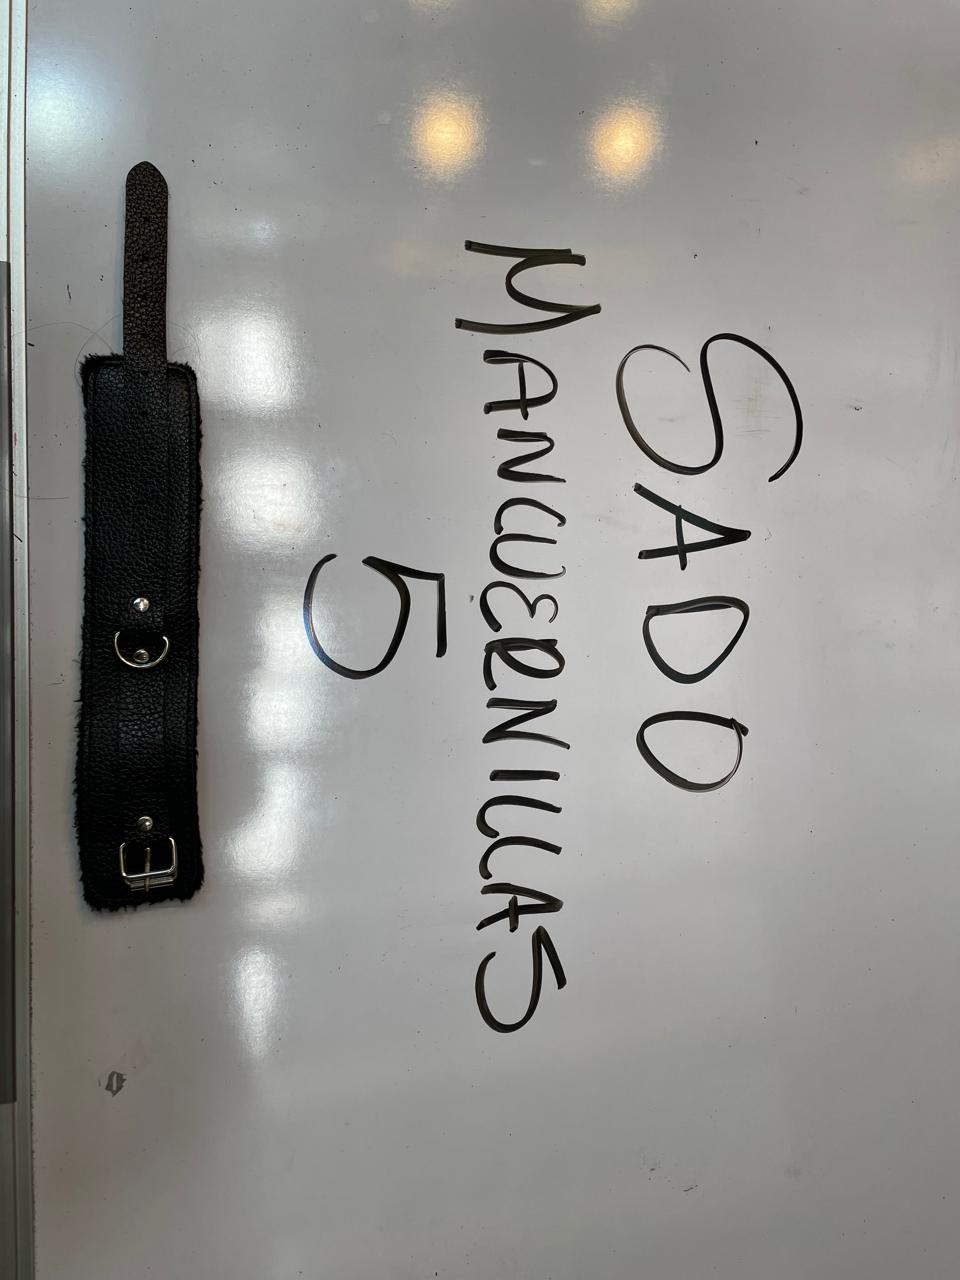 SADO
MANCUERNILLAS
5